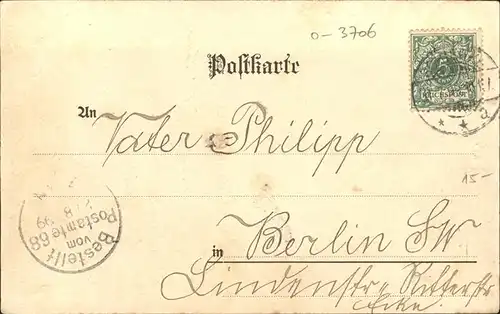 o-3706
Postkarte
5
REICHSPOST
An Vater Philipp
15-
Bestellt
vom
Postamte 68
8 99
in Berlin SW
Lindenstr. Ritterstr
Ecke.